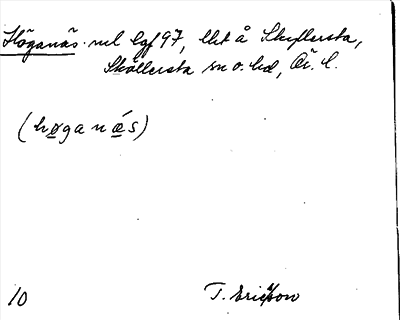 Höganäs. ncl lgf 97, lht å Skyllersta,
Sköllersta sn o. hd, Ör. l.
(høganǽs)
10 T. Ericsson